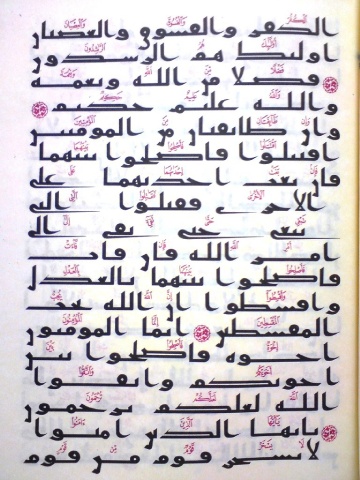 الكفر والفسوق والعصيان
اولئك هم الرشدون
فضلا من الله ونعمة
والله عليم حكيم
وان طائفتان من المؤمنين
اقتتلوا فاصلحوا بينهما
فان بغت احديهما على
الاخرى فقتلوا التي
تبغي حتى تفي الى
امر الله فان فاءت
فاصلحوا بينهما بالعدل
واقسطوا ان الله يحب
المقسطين انما المؤمنون
اخوة فاصلحوا بين
اخويكم واتقوا
الله لعلكم ترحمون
يايها الذين امنوا
لا يسخر قوم من قوم